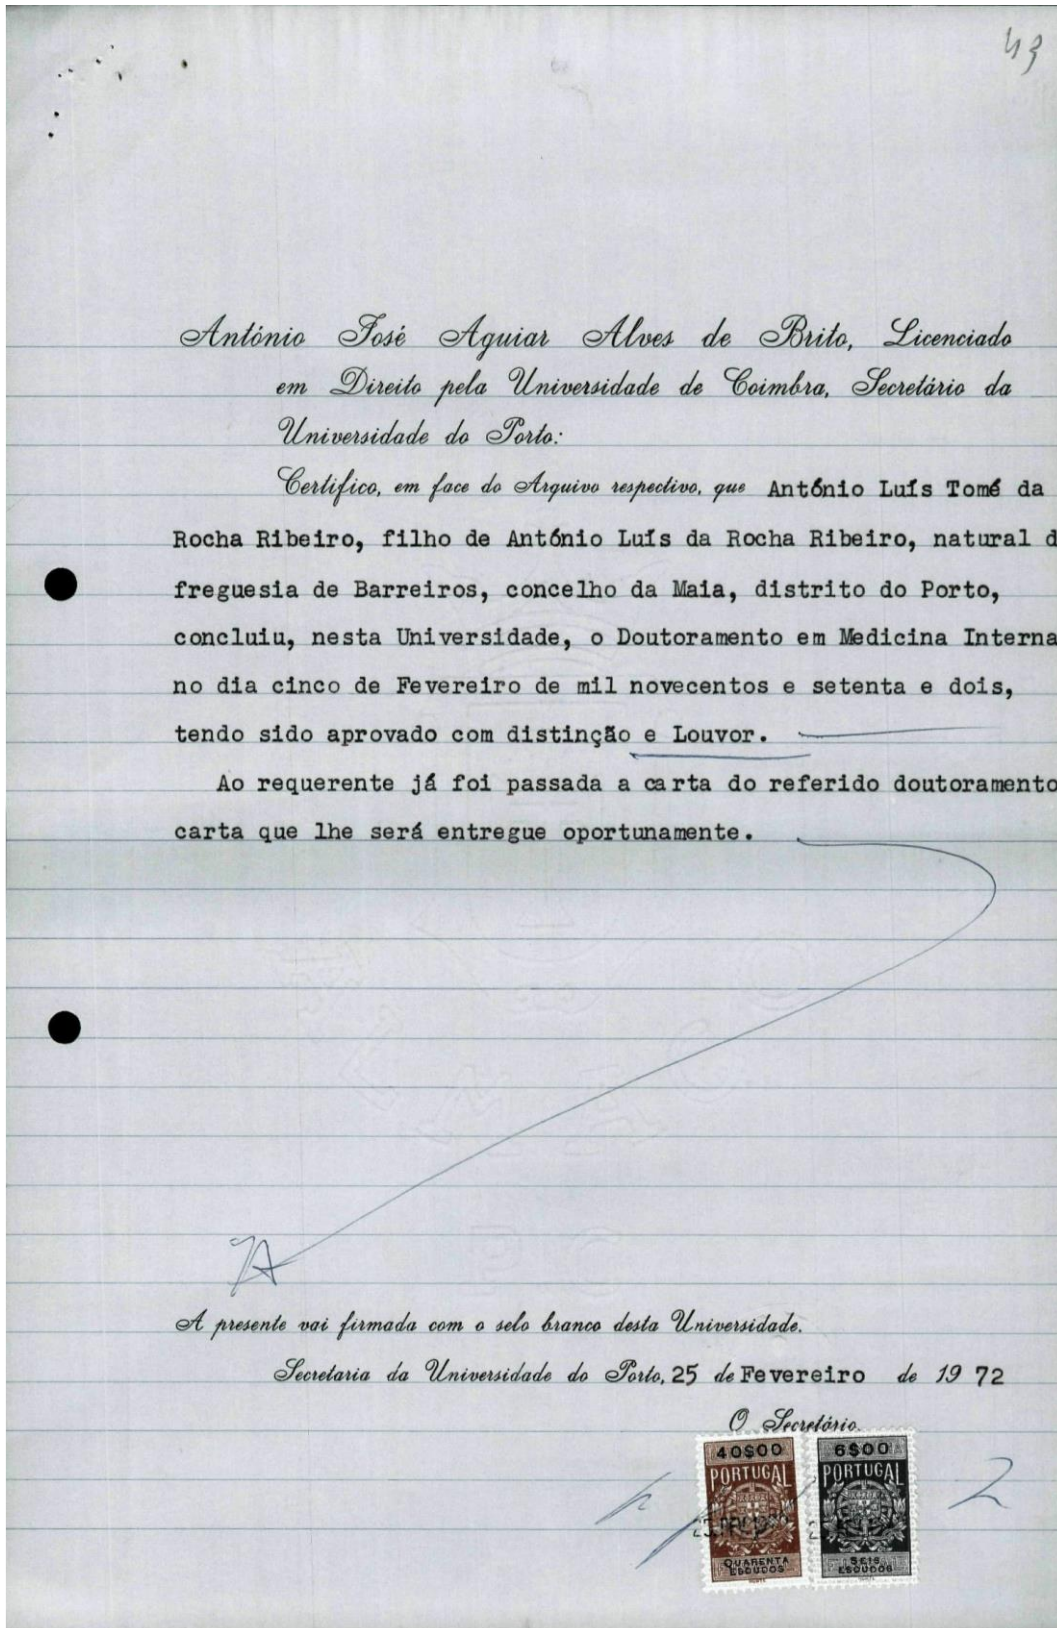 43
António José Aguiar Alves de Brito, Licenciado
em Direito pela Universidade de Coimbra, Secretário da
Universidade do Porto:
Certifico, em face do Arquivo respectivo, que António Luís Tomé da
Rocha Ribeiro, filho de António Luís da Rocha Ribeiro, natural d
freguesia de Barreiros, concelho da Maia, distrito do Porto,
concluiu, nesta Universidade, o Doutoramento em Medicina Interna
no dia cinco de Fevereiro de mil novecentos e setenta e dois,
tendo sido aprovado com distinção e Louvor.
Ao requerente já foi passada a carta do referido doutoramento
carta que lhe será entregue oportunamente.
A presente vai firmada com o selo branco desta Universidade.
Secretaria da Universidade do Porto, 25 de Fevereiro de 1972
O Secretário
40$00 6$00
PORTUGAL PORTUGAL
QUARENTA SEIS
ESCUDOS ESCUDOS